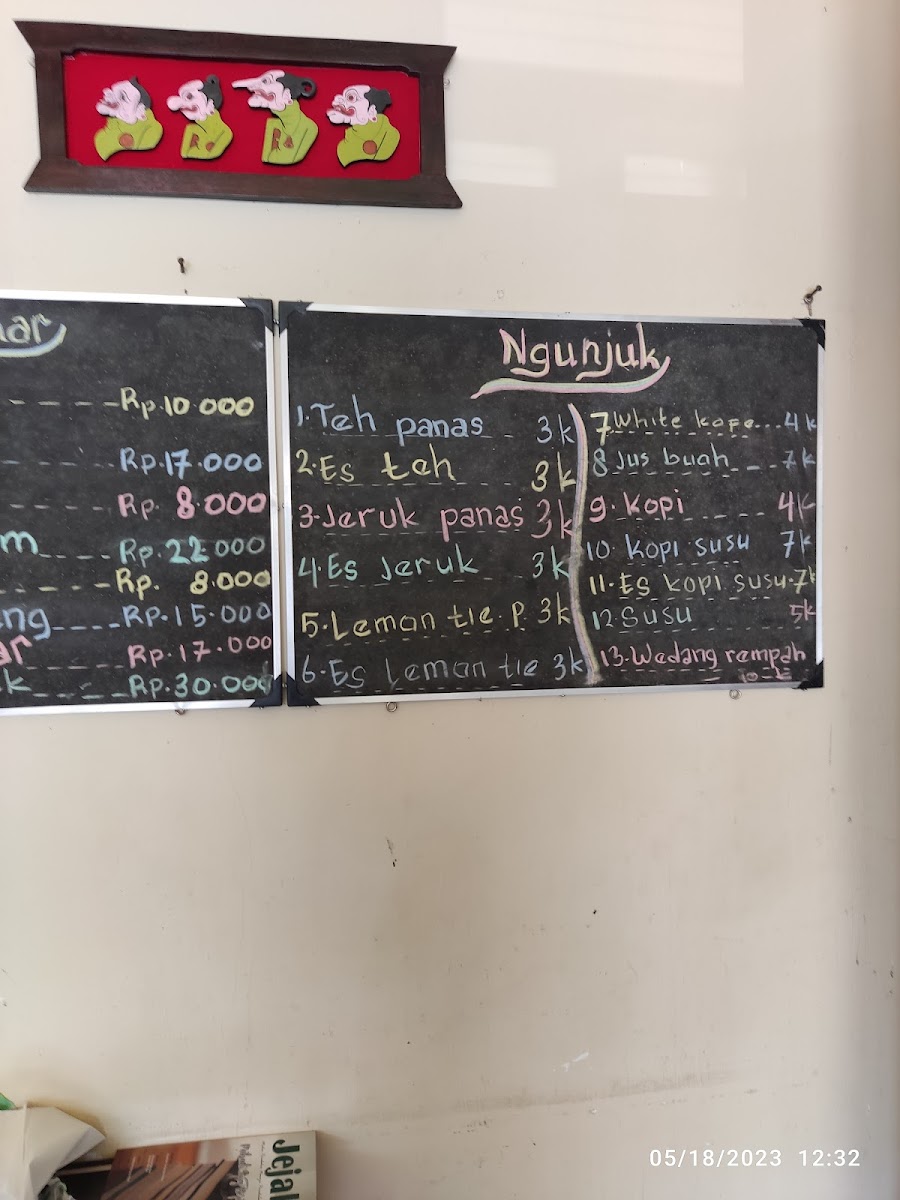 Rp.10.000
Rp.17.000
Rp. 8.000
Rp.22 000
Rp. 8.000
Rp.15.000
Rp.17.000
Rp.30.000
Ngunjuk
1.Teh panas 3k
2.Es teh 3k
3.Jeruk panas 3k
4.Es Jeruk 3k
5.Leman tie.p 3k
6.Es Leman tie 3k
7.White kope 4k
8 Jus buah 7k
9. Kopi 4k
10. Kopi susu 7k
11.Es kopi susu.7k
12.Susu 5k
13.Wedang rempah
Jejal
05/18/2023 12:32